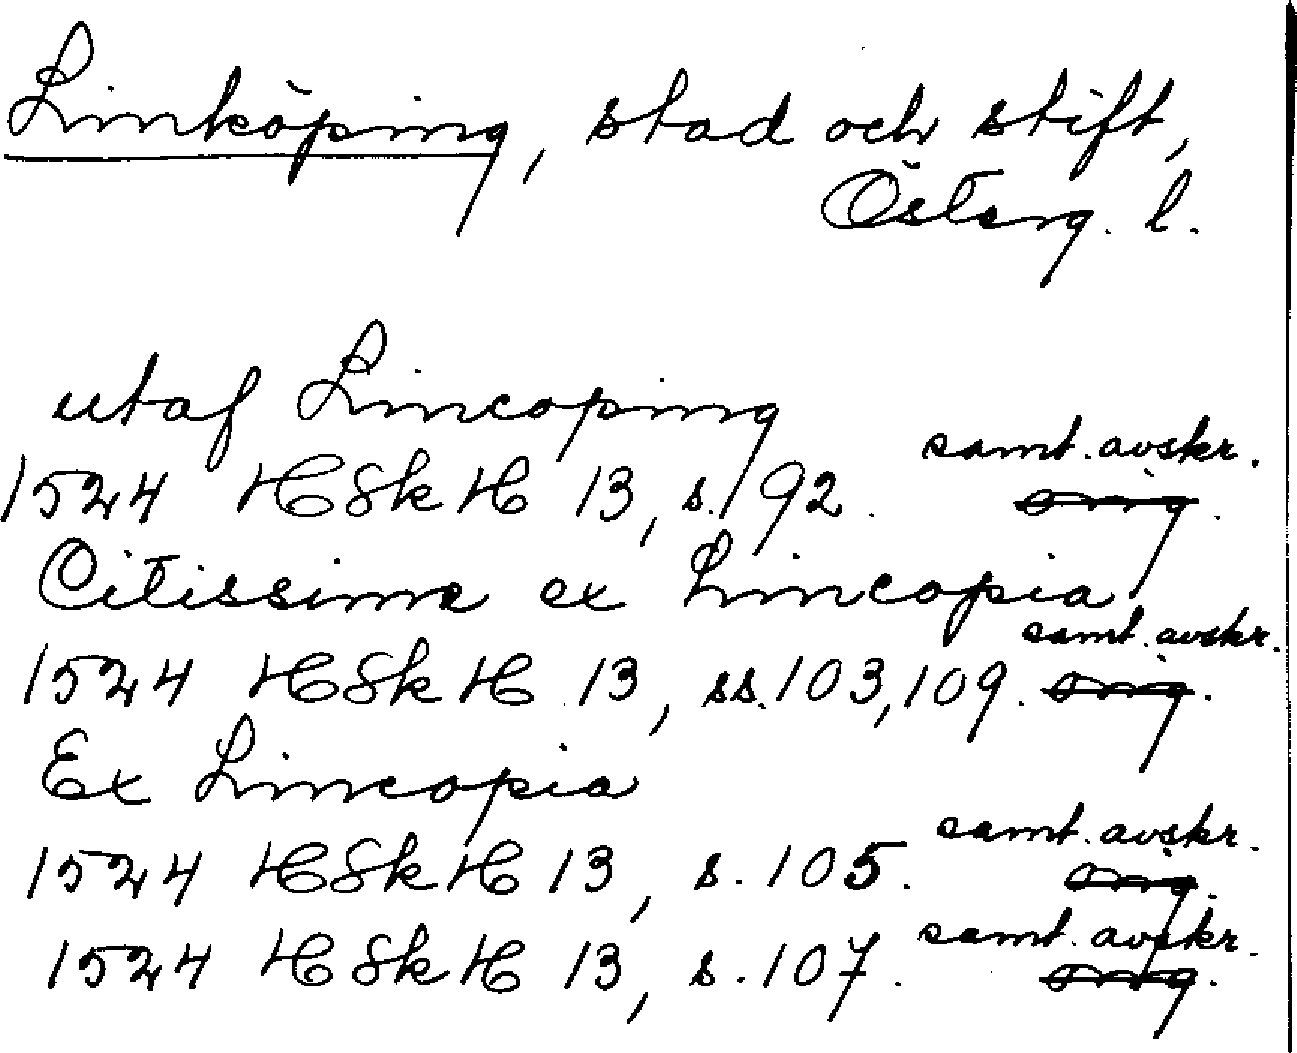 Linköping, stad och stift,
Österg. l.
utaf Lincoping
samt. avskr.
1524 HSkH 13, s. 92. orig.
Citissime ex Lincopia
samt. avskr.
1524 HSkH 13, ss. 103, 109. orig.
Ex Lincopia
samt. avskr.
1524 HSkH 13, s. 105. orig.
samt. avskr.
1524 HSkH 13, s. 107. orig.